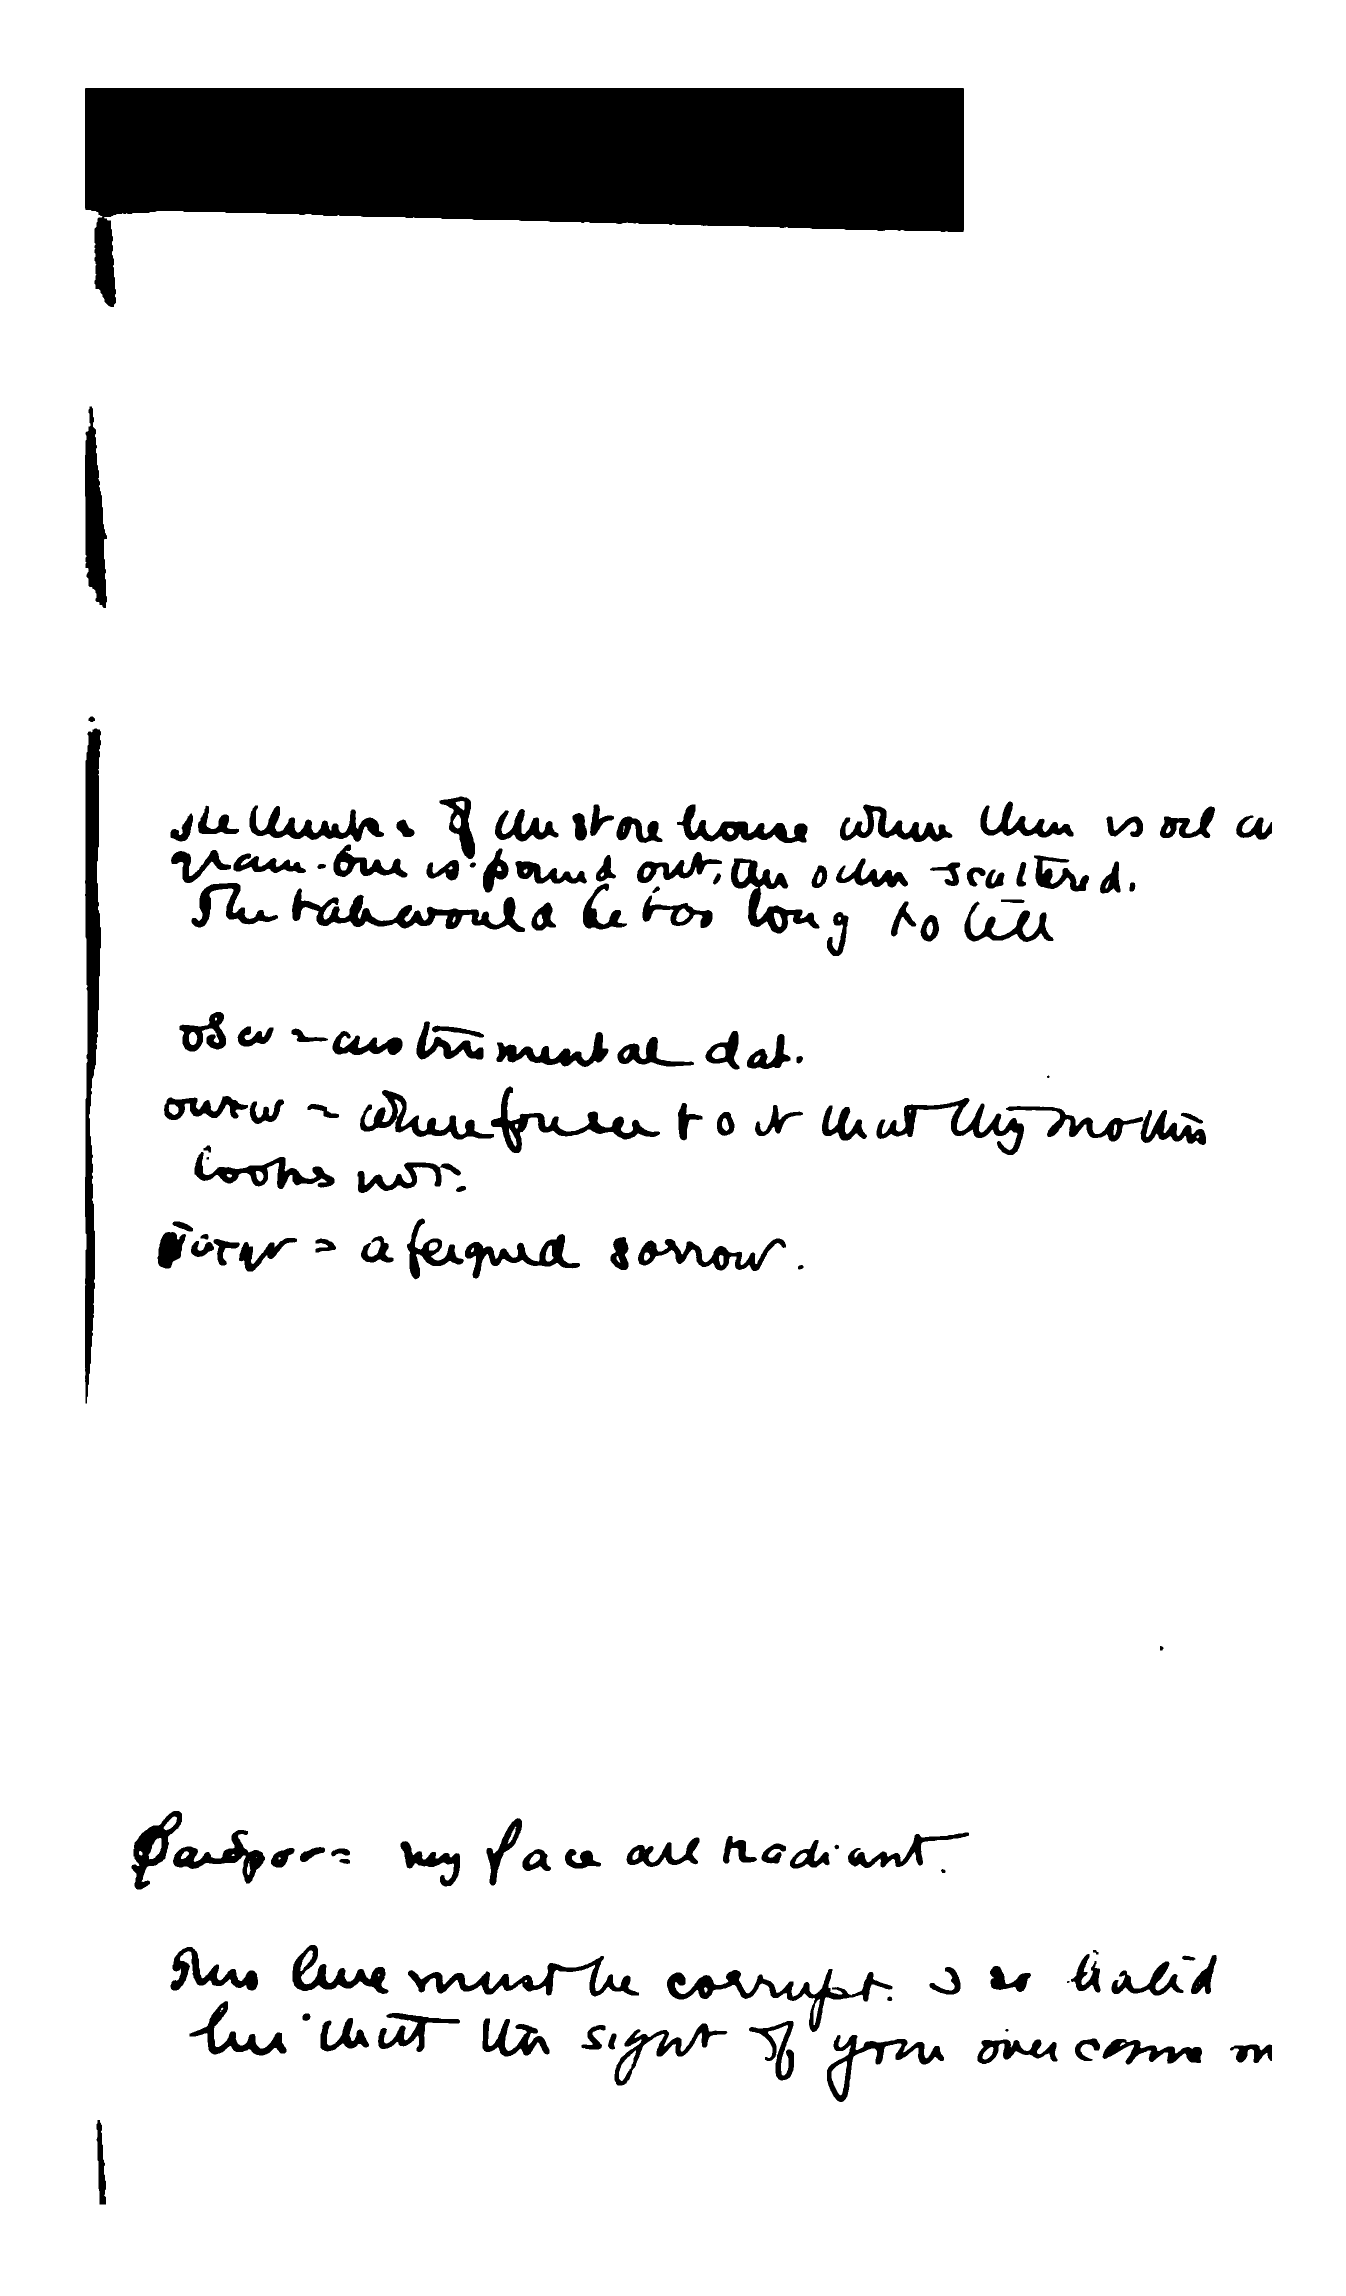 she thinks of the store house where there is oil
grain. One is pound out, the other scattered.
The tale would be too long to tell
instrumental dat.
οὕτω = wherefore see to it that thy mother
looks not.
= a feigned sorrow.
φαιδρον = my face all radiant.
This line must be corrupt. I so hailed
her that the sight of you overcame